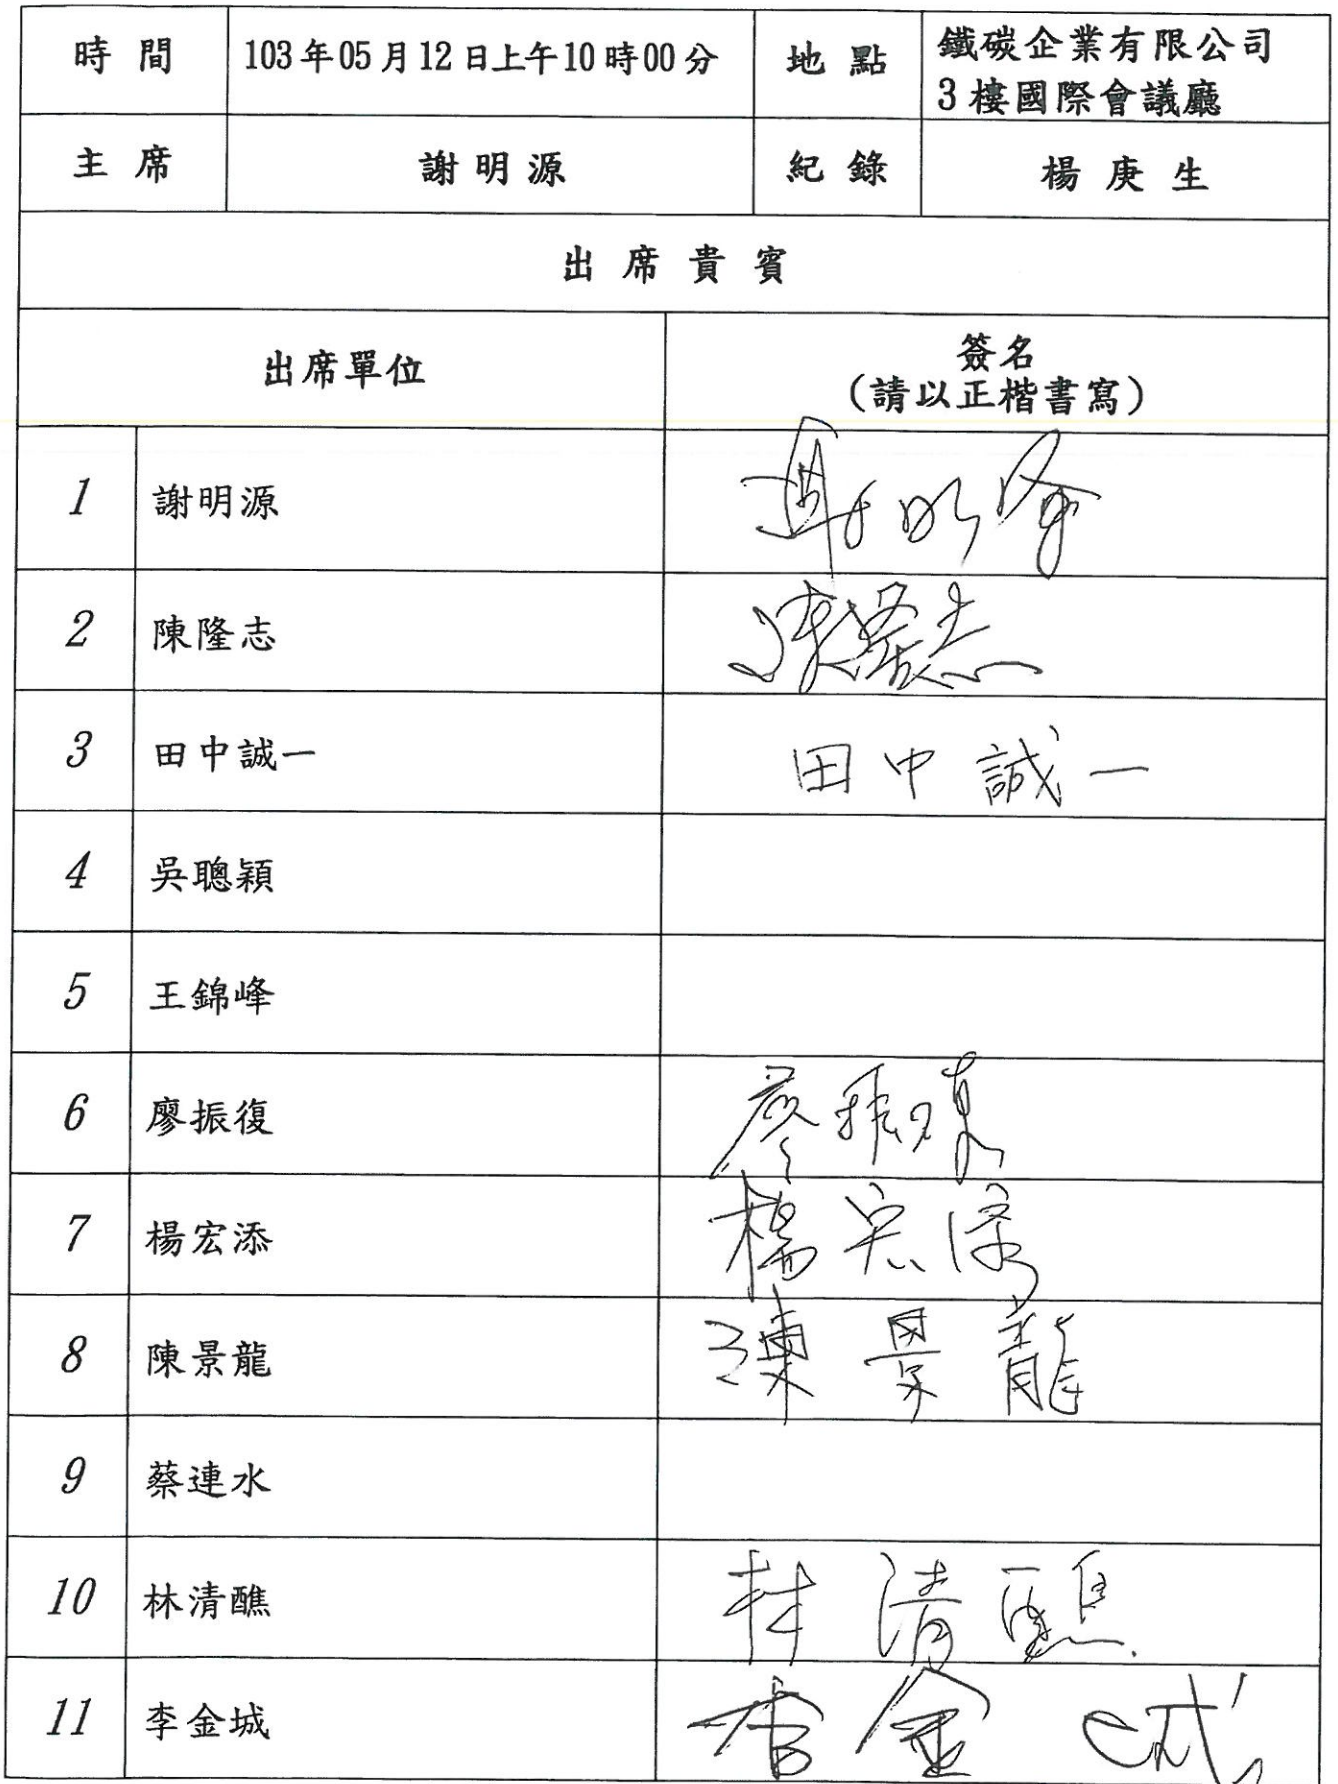 時 間 103年05月12日上午10時00分 地 點 鐵碳企業有限公司
3樓國際會議廳
主 席 謝明源 紀 錄 楊庚生
出席貴賓
出席單位 簽名
(請以正楷書寫)
1 謝明源 謝明源
2 陳隆志 陳隆志
3 田中誠一 田中誠一
4 吳聰穎
5 王錦峰
6 廖振復 廖振復
7 楊宏添 楊宏添
8 陳景龍 陳景龍
9 蔡連水
10 林清醮 林清醮
11 李金城 李金城